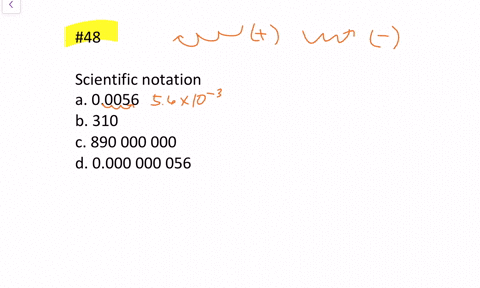 #48 (+) (-)
Scientific notation
a. 0.0056 5.6 x 10⁻³
b. 310
c. 890 000 000
d. 0.000 000 056